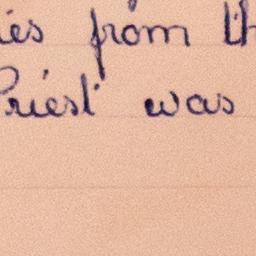 ies from th
Priest was